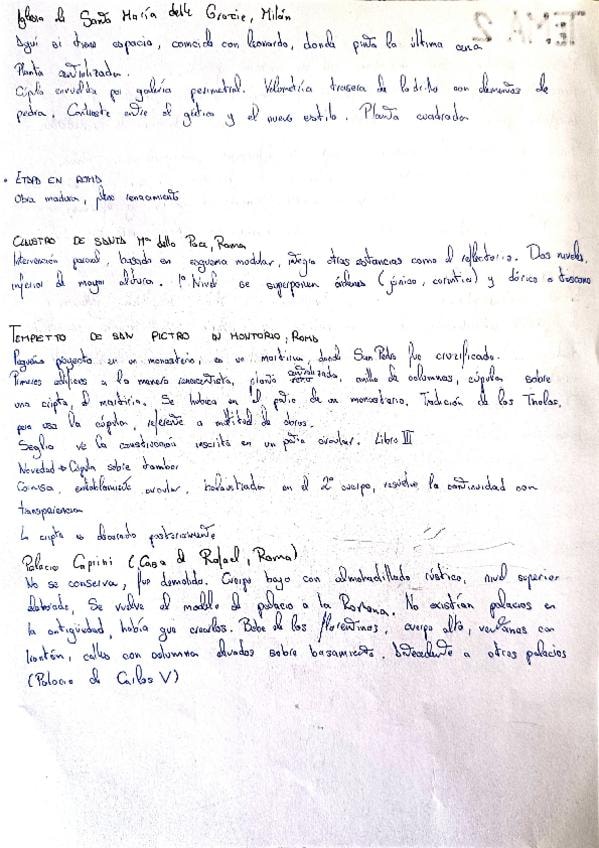 Iglesia de Santa María delle Grazie, Milán
Aquí si tiene espacio, coincide con Leonardo, donde pinta la última cena
Planta centralizada.
Cúpula envuelta por galería perimetral. Volumetría trasera de ladrillo con elementos de
piedra. Contraste entre el gótico y el nuevo estilo. Planta cuadrada
• ETAPA EN ROMA
Obra madura, pleno renacimiento
CLAUSTRO DE SANTA Mª della Pace, Roma
Intervención parcial, basado en esquema modular, integra otras estancias como el refectorio. Dos niveles,
inferior de mayor altura. 1º Nivel se superponen órdenes (jónico, corintio) y dórico o toscano
TEMPIETTO DE SAN PIETRO IN MONTORIO, ROMA
Pequeño proyecto en un monasterio, es un martirium donde San Pedro fue crucificado.
Primeros edificios a la manera renacentista, planta centralizada, anillo de columnas, cúpula sobre
una cripta, el martirio. Se ubica en el patio de un monasterio. Tradición de los Tholos,
pero usa la cúpula, referente a multitud de obras.
Seglio ve la construcción inscrita en un patio circular. Libro III
Novedad → Cúpula sobre tambor
Cornisa, entablamento circular, balaustrada en el 2º cuerpo, resuelve la continuidad con
transparencia
La cripta es decorada posteriormente
Palacio Caprini (Casa de Rafael, Roma)
No se conserva, fue demolido. Cuerpo bajo con almohadillado rústico, nivel superior
elaborado, Se vuelve el modelo de palacio a la Romana. No existían palacios en
la antigüedad, había que crearlos. Bebe de los florentinos, cuerpo alto, ventanas con
frontón, calles con columnas elevadas sobre basamento. Antecedente a otros palacios
(Palacio de Carlos V)